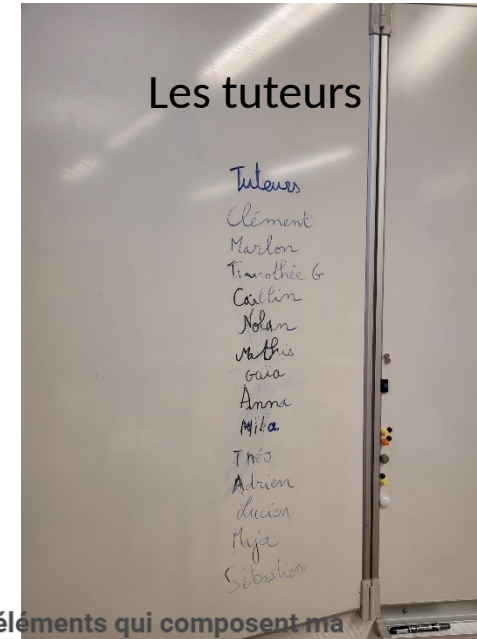 Les tuteurs
Tuteurs
Clément
Marlon
Timothée G
Caitlin
Nolan
Mathis
Gaïa
Anna
Mila
Théo
Adrien
Lucien
Maja
Sébastien
éléments qui composent ma